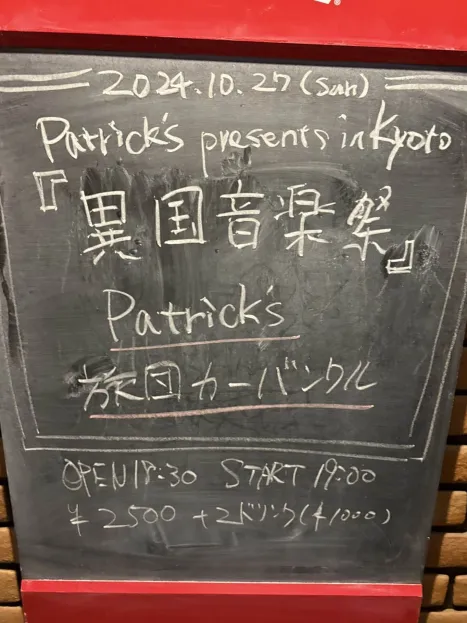 2024.10.27(Sun)
Patrick's presents in Kyoto
『異国音楽祭』
Patrick's
旅団カーバンクル
OPEN18:30 START 19:00
¥2500+2ドリンク(¥1000)